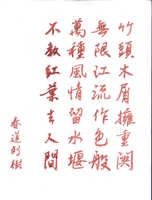 竹頭木屑擁重闕
無限江流作色般
萬種風情留水堰
不教紅葉生人間
春道列樹